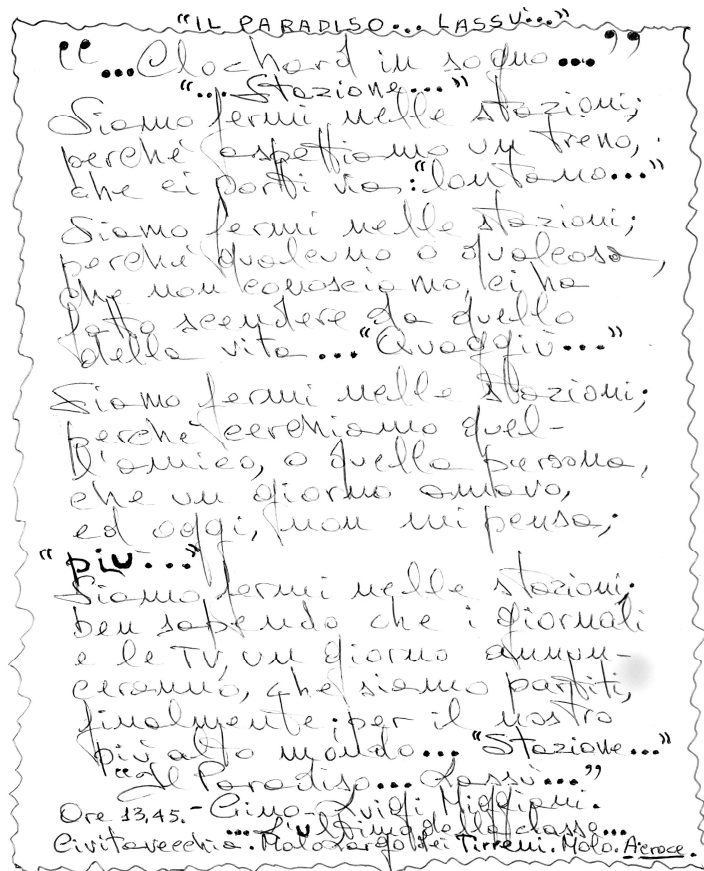 "IL PARADISO... LASSÙ..."
"...Clochard in sogno..."
"...Stazione..."
Siamo fermi nelle stazioni;
perché aspettiamo un treno,
che ci porti via: "lontano..."
Siamo fermi nelle stazioni;
perché qualcuno o qualcosa,
che non conosciamo, ci ha
fatto scendere da quello
della vita..."Quaggiù..."
Siamo fermi nelle stazioni;
perché cerchiamo quel-
l'amico, o quella persona,
che un giorno amava,
ed oggi, non mi pensa;
"più..."
Siamo fermi nelle stazioni;
ben sapendo che i giornali
e le TV, un giorno annun-
ceranno, che siamo partiti,
finalmente; per il nostro
più alto mondo... "Stazione..."
"Il Paradiso... Lassù..."
Ore 13,45.- Gino-Luigi Miggiani.
...L'ultimo della classe...
Civitavecchia. Largo dei Tirreni. Molo.